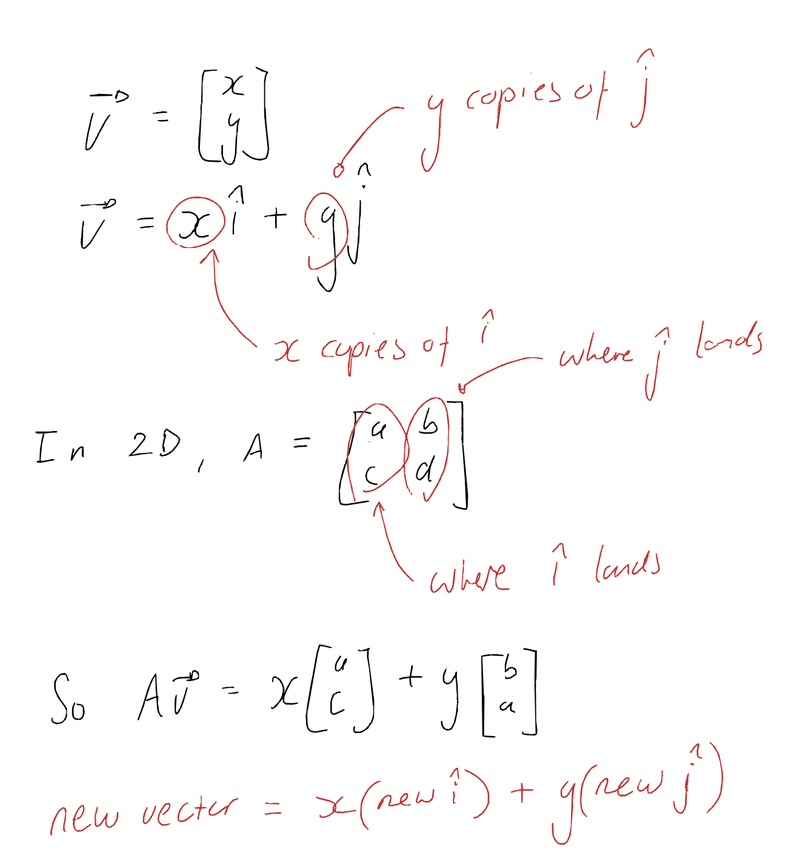 V⃗ = [x y]
y copies of ĵ
V⃗ = x î + y ĵ
x copies of î
where ĵ lands
In 2D, A = [a b
c d]
where î lands
So AV⃗ = x[a c] + y[b a]
new vector = x(new î) + y(new ĵ)